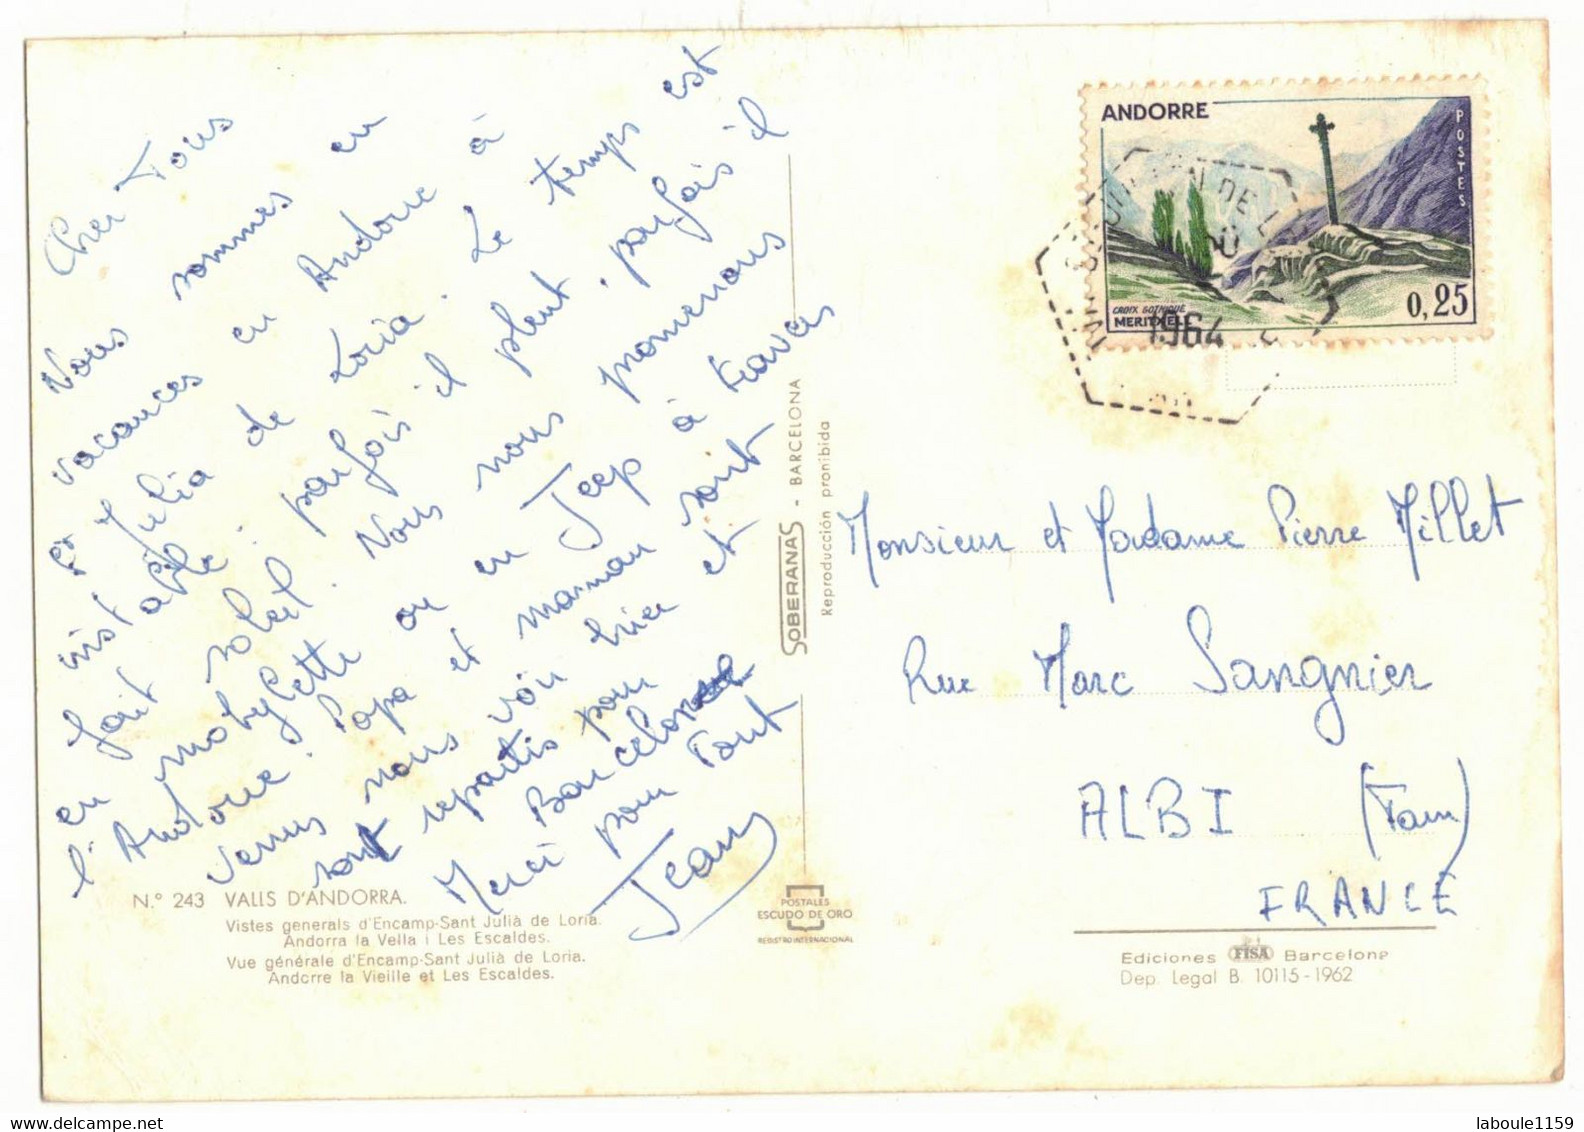 Cher Tous
Nous sommes en
vacances en Andorre à
St Julia de Loria. Le temps est
instable : parfois il pleut, parfois il
fait soleil. Nous nous promenons
en mobylette ou en Jeep à travers
l'Andorre. Papa et maman sont
venus nous voir hier et sont
repartis pour Barcelone
Merci pour tout
Jeany
N.° 243 VALLS D'ANDORRA.
Vistes generals d'Encamp-Sant Julià de Loria.
Andorra la Vella i Les Escaldes.
Vue générale d'Encamp-Sant Julia de Loria.
Andorre la Vieille et Les Escaldes.
SOBERANAS - BARCELONA
Reproducción prohibida
POSTALES
ESCUDO DE ORO
REGISTRO INTERNACIONAL
ANDORRE
POSTES
CROIX GOTHIQUE
MERITXELL
0,25
1964
Monsieur et Madame Pierre Millet
Rue Marc Sangnier
ALBI (Tarn)
FRANCE
Ediciones FISA Barcelona
Dep. Legal B. 10115-1962
www.delcampe.net
laboule1159